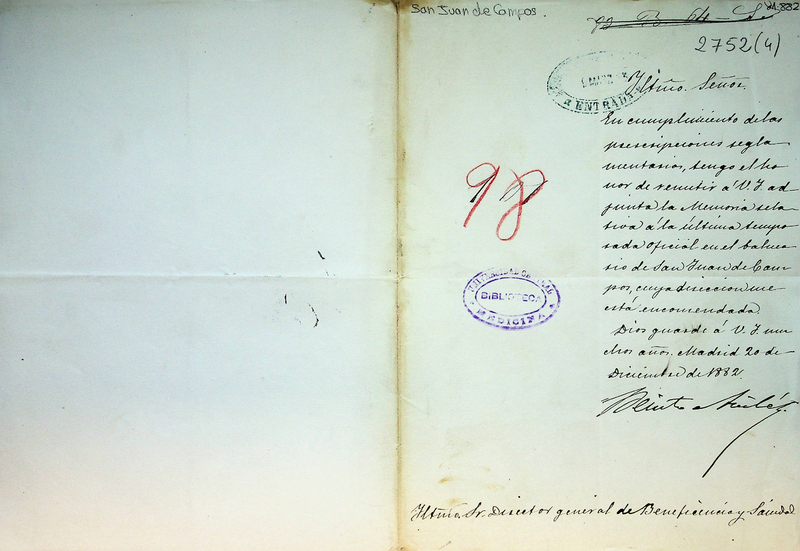 San Juan de Campos.
1882
2752(4)
ENTRADA
Iltmo. Señor.
En cumplimiento de las
prescripciones regla
mentarias, tengo el ho
nor de remitir á V. I. ad
junta la Memoria rela
tiva á la última tempo
rada oficial en el balnea
rio de San Juan de Cam
pos, cuya direccion me
está encomendada.
Dios guarde á V. I. mu
chos años. Madrid 20 de
Diciembre de 1882.
98
BIBLIOTECA
MEDICINA
Benito
Iltmo. Sr. Director general de Beneficencia y Sanidad